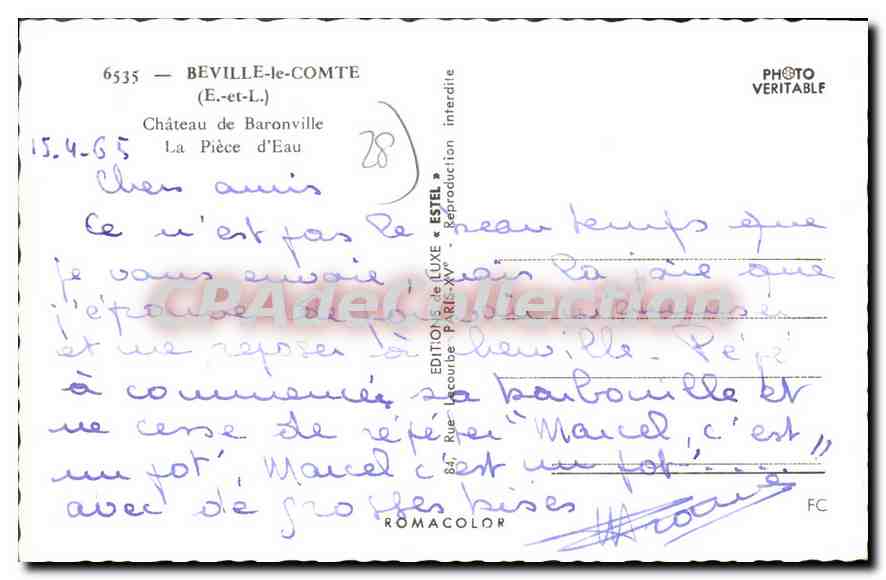 6535 — BEVILLE-le-COMTE
(E.-et-L.)
Château de Baronville
La Pièce d'Eau
PHOTO
VERITABLE
28
15.4.65
Chers amis
Ce n'est pas le beau temps que
je vous envoie, mais la joie que
j'éprouve de pouvoir
et me reposer à cheville. Pépé
à commencé sa barbouille et
ne cesse de répéter "Marcel, c'est
un pot", Marcel c'est un pot".....
avec de grosses bises
EDITIONS de LUXE « ESTEL »
84, Rue Lecourbe PARIS-XVe - Reproduction interdite
ROMACOLOR
FC
CPAdeCollection